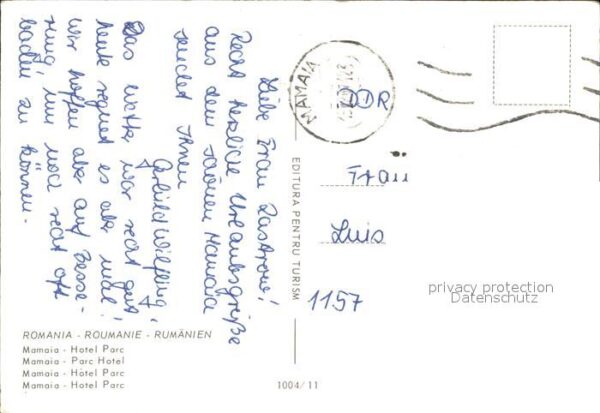 Liebe Frau Zastrow!
Recht herzliche Urlaubsgrüße
aus dem schönen Mamaia
sendet Ihnen
Gerhild Wilfling
Das Wetter war recht gut,
heute regnet es aber mal.
Wir hoffen aber auf Besse-
rung, um noch recht oft
baden zu können.-
ROMANIA - ROUMANIE - RUMÄNIEN
Mamaia - Hotel Parc
Mamaia - Parc Hotel
Mamaia - Hôtel Parc
Mamaia - Hotel Parc
EDITURA PENTRU TURISM
1004/11
MAMAIA
DDR
Frau
Luis
1157
privacy protection
Datenschutz